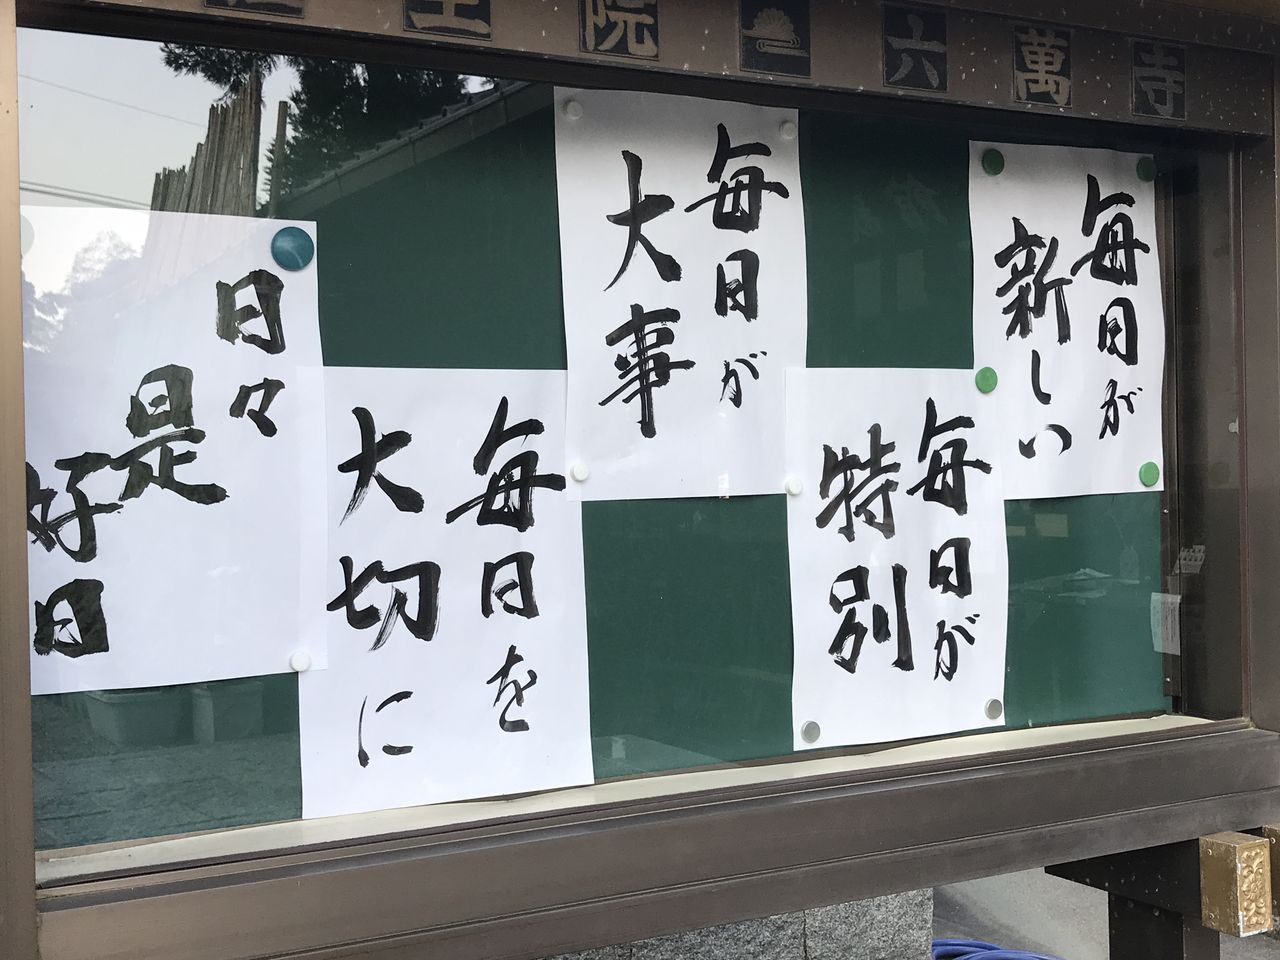 寺萬六
院王
毎日が
新しい
毎日が
特別
毎日が
大事
毎日を
大切に
日々
是
好日